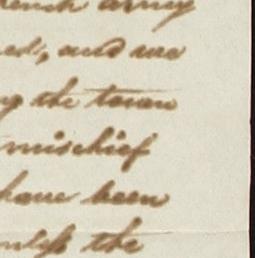 French army
ed, and are
ng the town
mischief
have been
unless the